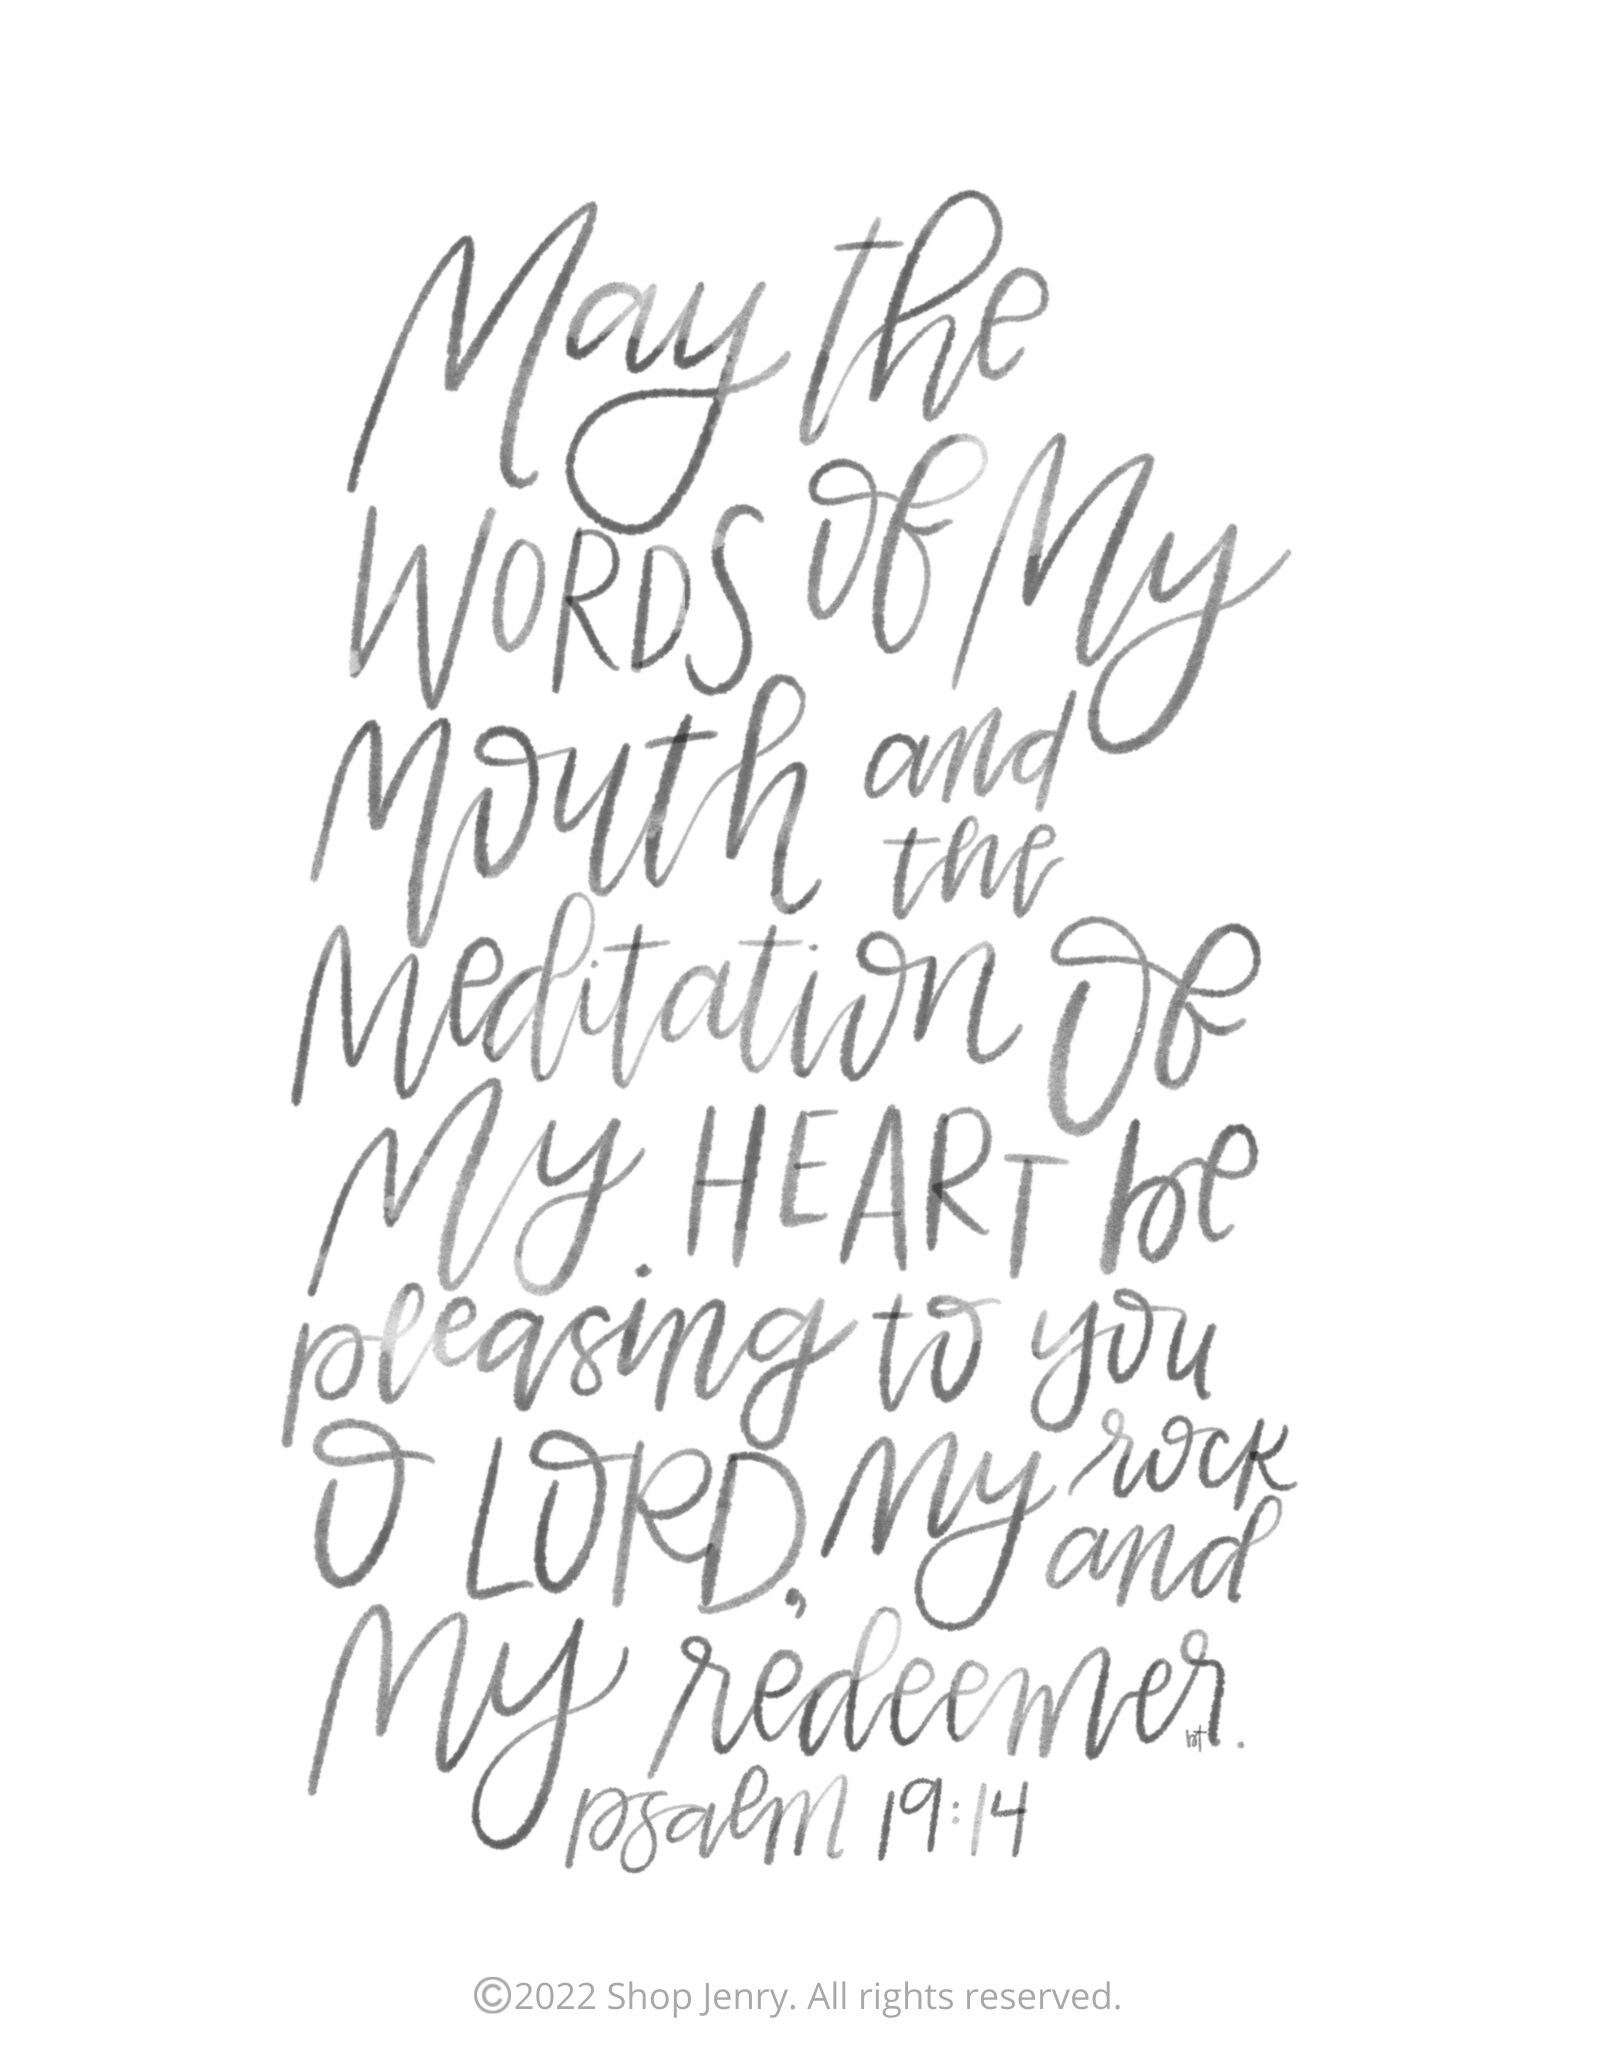 May the
WORDS of My
Mouth and
the
Meditation Of
My HEART be
pleasing to you
O LORD, My rock
and
My redeemer.
bt
psalm 19:14
©2022 Shop Jenry. All rights reserved.